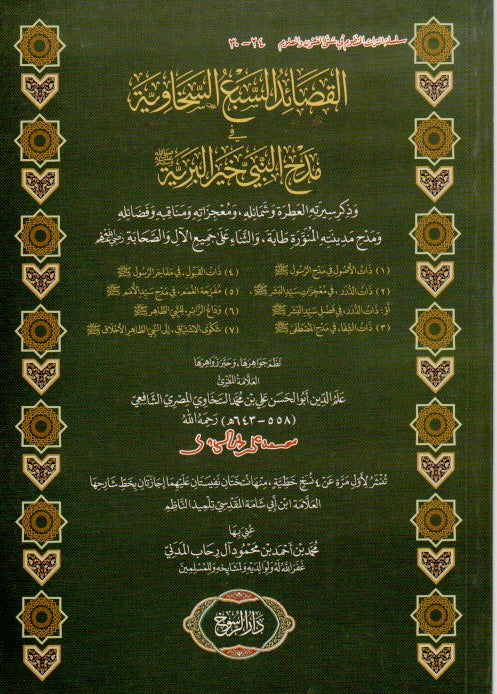 سلسلة التراث المنظوم في شتى الفنون والعلوم ٢٤ - ٣٠
القصائد السبع السخاوية
في
مدح النبي خير البرية ﷺ
وذكر سيرته العطرة وشمائله، ومعجزاته ومناقبه وفضائله
ومدح مدينته المنورة طابة، والثناء على جميع الآل والصحابة رضي الله عنهم
(١) ذات الأصول في مدح الرسول ﷺ (٤) ذات القبول، في مفاخر الرسول ﷺ
(٢) ذات الدرر، في معجزات سيد البشر، (٥) مفرجة الغمم، في مدح سيد الأمم ﷺ
أو: ذات الدرر، في فضل سيد البشر ﷺ (٦) وداع الزائر، للنبي الطاهر ﷺ
(٣) ذات الشفا، في مدح المصطفى ﷺ (٧) شكوى الاشتياق، إلى النبي الطاهر الأخلاق ﷺ
نظم جواهرها، وحبر زواهرها
العلامة المقرئ
علم الدين أبو الحسن علي بن محمد السخاوي المصري الشافعي
(٥٥٨ - ٦٤٣هـ) رحمه الله
تنشر لأول مرة عن ٤ نسخ خطية، منها نسختان نفيستان عليهما إجازتان بخط شارحها
العلامة ابن أبي شامة المقدسي تلميذ الناظم
عني بها
محمد بن أحمد بن محمود آل رحاب المدني
غفر الله له ولوالديه ولمشايخه وللمسلمين
دار الرسوخ